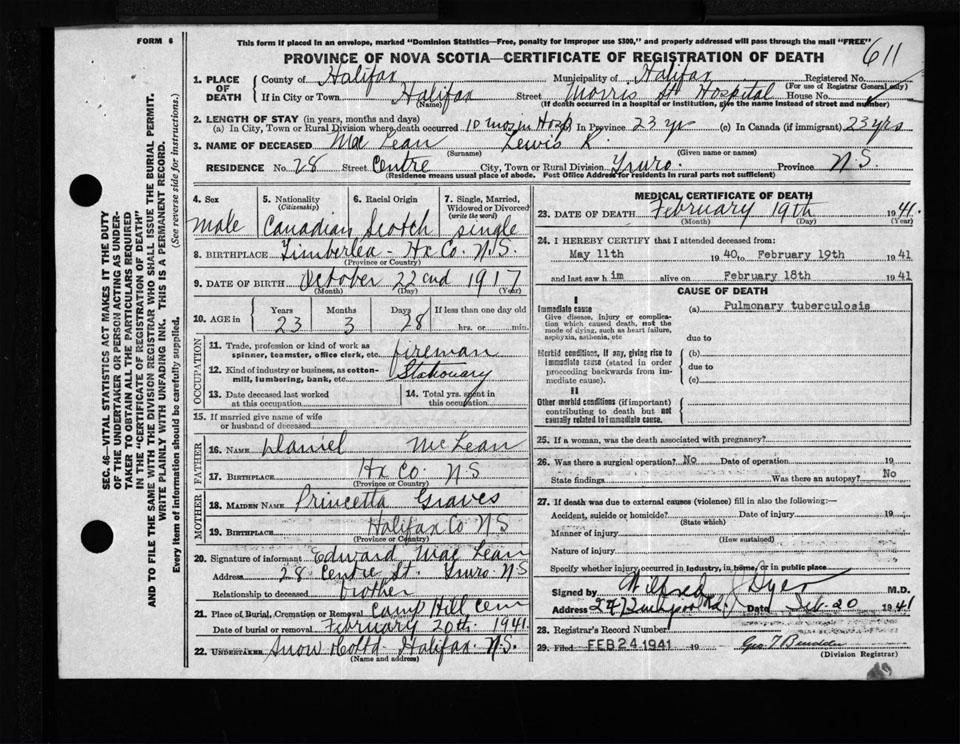 FORM 6
This form if placed in an envelope, marked "Dominion Statistics—Free, penalty for improper use $300," and properly addressed will pass through the mail "FREE"
PROVINCE OF NOVA SCOTIA—CERTIFICATE OF REGISTRATION OF DEATH
611
1. PLACE OF DEATH
County of Halifax Municipality of Halifax Registered No.
(For use of Registrar General only)
If in City or Town Halifax Street Morris St Hospital House No.
(Name) (If death occurred in a hospital or institution, give the name instead of street and number)
2. LENGTH OF STAY (in years, months and days)
(a) In City, Town or Rural Division where death occurred 10 mos in Hosp (b) In Province 23 yrs (c) In Canada (if immigrant) 23 yrs
3. NAME OF DECEASED Mac Lean Lewis K.
(Surname) (Given name or names)
RESIDENCE No. 28 Street Centre City, Town or Rural Division Truro Province N.S.
(Residence means usual place of abode. Post Office Address for residents in rural parts not sufficient)
4. Sex
male
5. Nationality
(Citizenship)
Canadian
6. Racial Origin
Scotch
7. Single, Married, Widowed or Divorced
(write the word)
single
8. BIRTHPLACE Timberlea - Hx Co. N.S.
(Province or Country)
9. DATE OF BIRTH October 22nd 1917
(Month) (Day) (Year)
10. AGE in Years Months Days If less than one day old
23 3 28 hrs. or min.
OCCUPATION
11. Trade, profession or kind of work as spinner, teamster, office clerk, etc. fireman
12. Kind of industry or business, as cotton-mill, lumbering, bank, etc. Stationary
13. Date deceased last worked at this occupation
14. Total yrs. spent in this occupation
15. If married give name of wife or husband of deceased
FATHER
16. NAME Daniel McLean
17. BIRTHPLACE Hx Co. N.S
(Province or Country)
MOTHER
18. MAIDEN NAME Princetta Graves
19. BIRTHPLACE Halifax Co N.S
(Province or Country)
20. Signature of informant Edward Mac Lean
Address 28 Centre St. Truro. N.S
Relationship to deceased brother
21. Place of Burial, Cremation or Removal Camp Hill Cem
Date of burial or removal February 20th 1941
22. UNDERTAKER Snow Halifax N.S.
(Name and address)
MEDICAL CERTIFICATE OF DEATH
23. DATE OF DEATH February 19th 1941.
(Month) (Day) (Year)
24. I HEREBY CERTIFY that I attended deceased from:
May 11th 1940 to February 19th 1941
and last saw him alive on February 18th 1941
CAUSE OF DEATH
I
Immediate cause
Give disease, injury or complication which caused death, not the mode of dying, such as heart failure, asphyxia, asthenia, etc
(a) Pulmonary tuberculosis
due to
Morbid conditions, if any, giving rise to immediate cause (stated in order proceeding backwards from immediate cause).
(b)
due to
(c)
II
Other morbid conditions (if important) contributing to death but not causally related to immediate cause.
25. If a woman, was the death associated with pregnancy?
26. Was there a surgical operation? No Date of operation 19
State findings Was there an autopsy? No
27. If death was due to external causes (violence) fill in also the following:—
Accident, suicide or homicide? Date of injury 19
(State which)
Manner of injury
(How sustained)
Nature of injury
Specify whether injury occurred in industry, in home, or in public place
Signed by Wilfred J Dyer M.D.
Address Date Feb. 20 1941
28. Registrar's Record Number
29. Filed FEB 24 1941 19
(Division Registrar)
SEC. 46—VITAL STATISTICS ACT MAKES IT THE DUTY
OF THE UNDERTAKER OR PERSON ACTING AS UNDERTAKER TO OBTAIN ALL THE PARTICULARS REQUIRED
IN THE "CERTIFICATE OF REGISTRATION OF DEATH"
AND TO FILE THE SAME WITH THE DIVISION REGISTRAR WHO SHALL ISSUE THE BURIAL PERMIT.
WRITE PLAINLY WITH UNFADING INK. THIS IS A PERMANENT RECORD.
Every item of information should be carefully supplied. (See reverse side for instructions.)